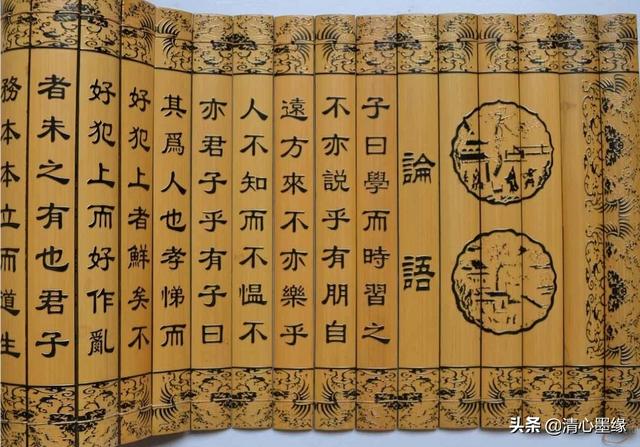 論語
子曰學而時習之
不亦說乎有朋自
遠方來不亦樂乎
人不知而不愠不
亦君子乎有子曰
其爲人也孝悌而
好犯上者鮮矣不
好犯上而好作亂
者未之有也君子
務本本立而道生
头条 @清心墨缘